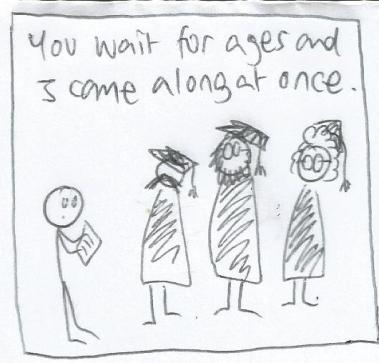 You wait for ages and
3 come along at once.